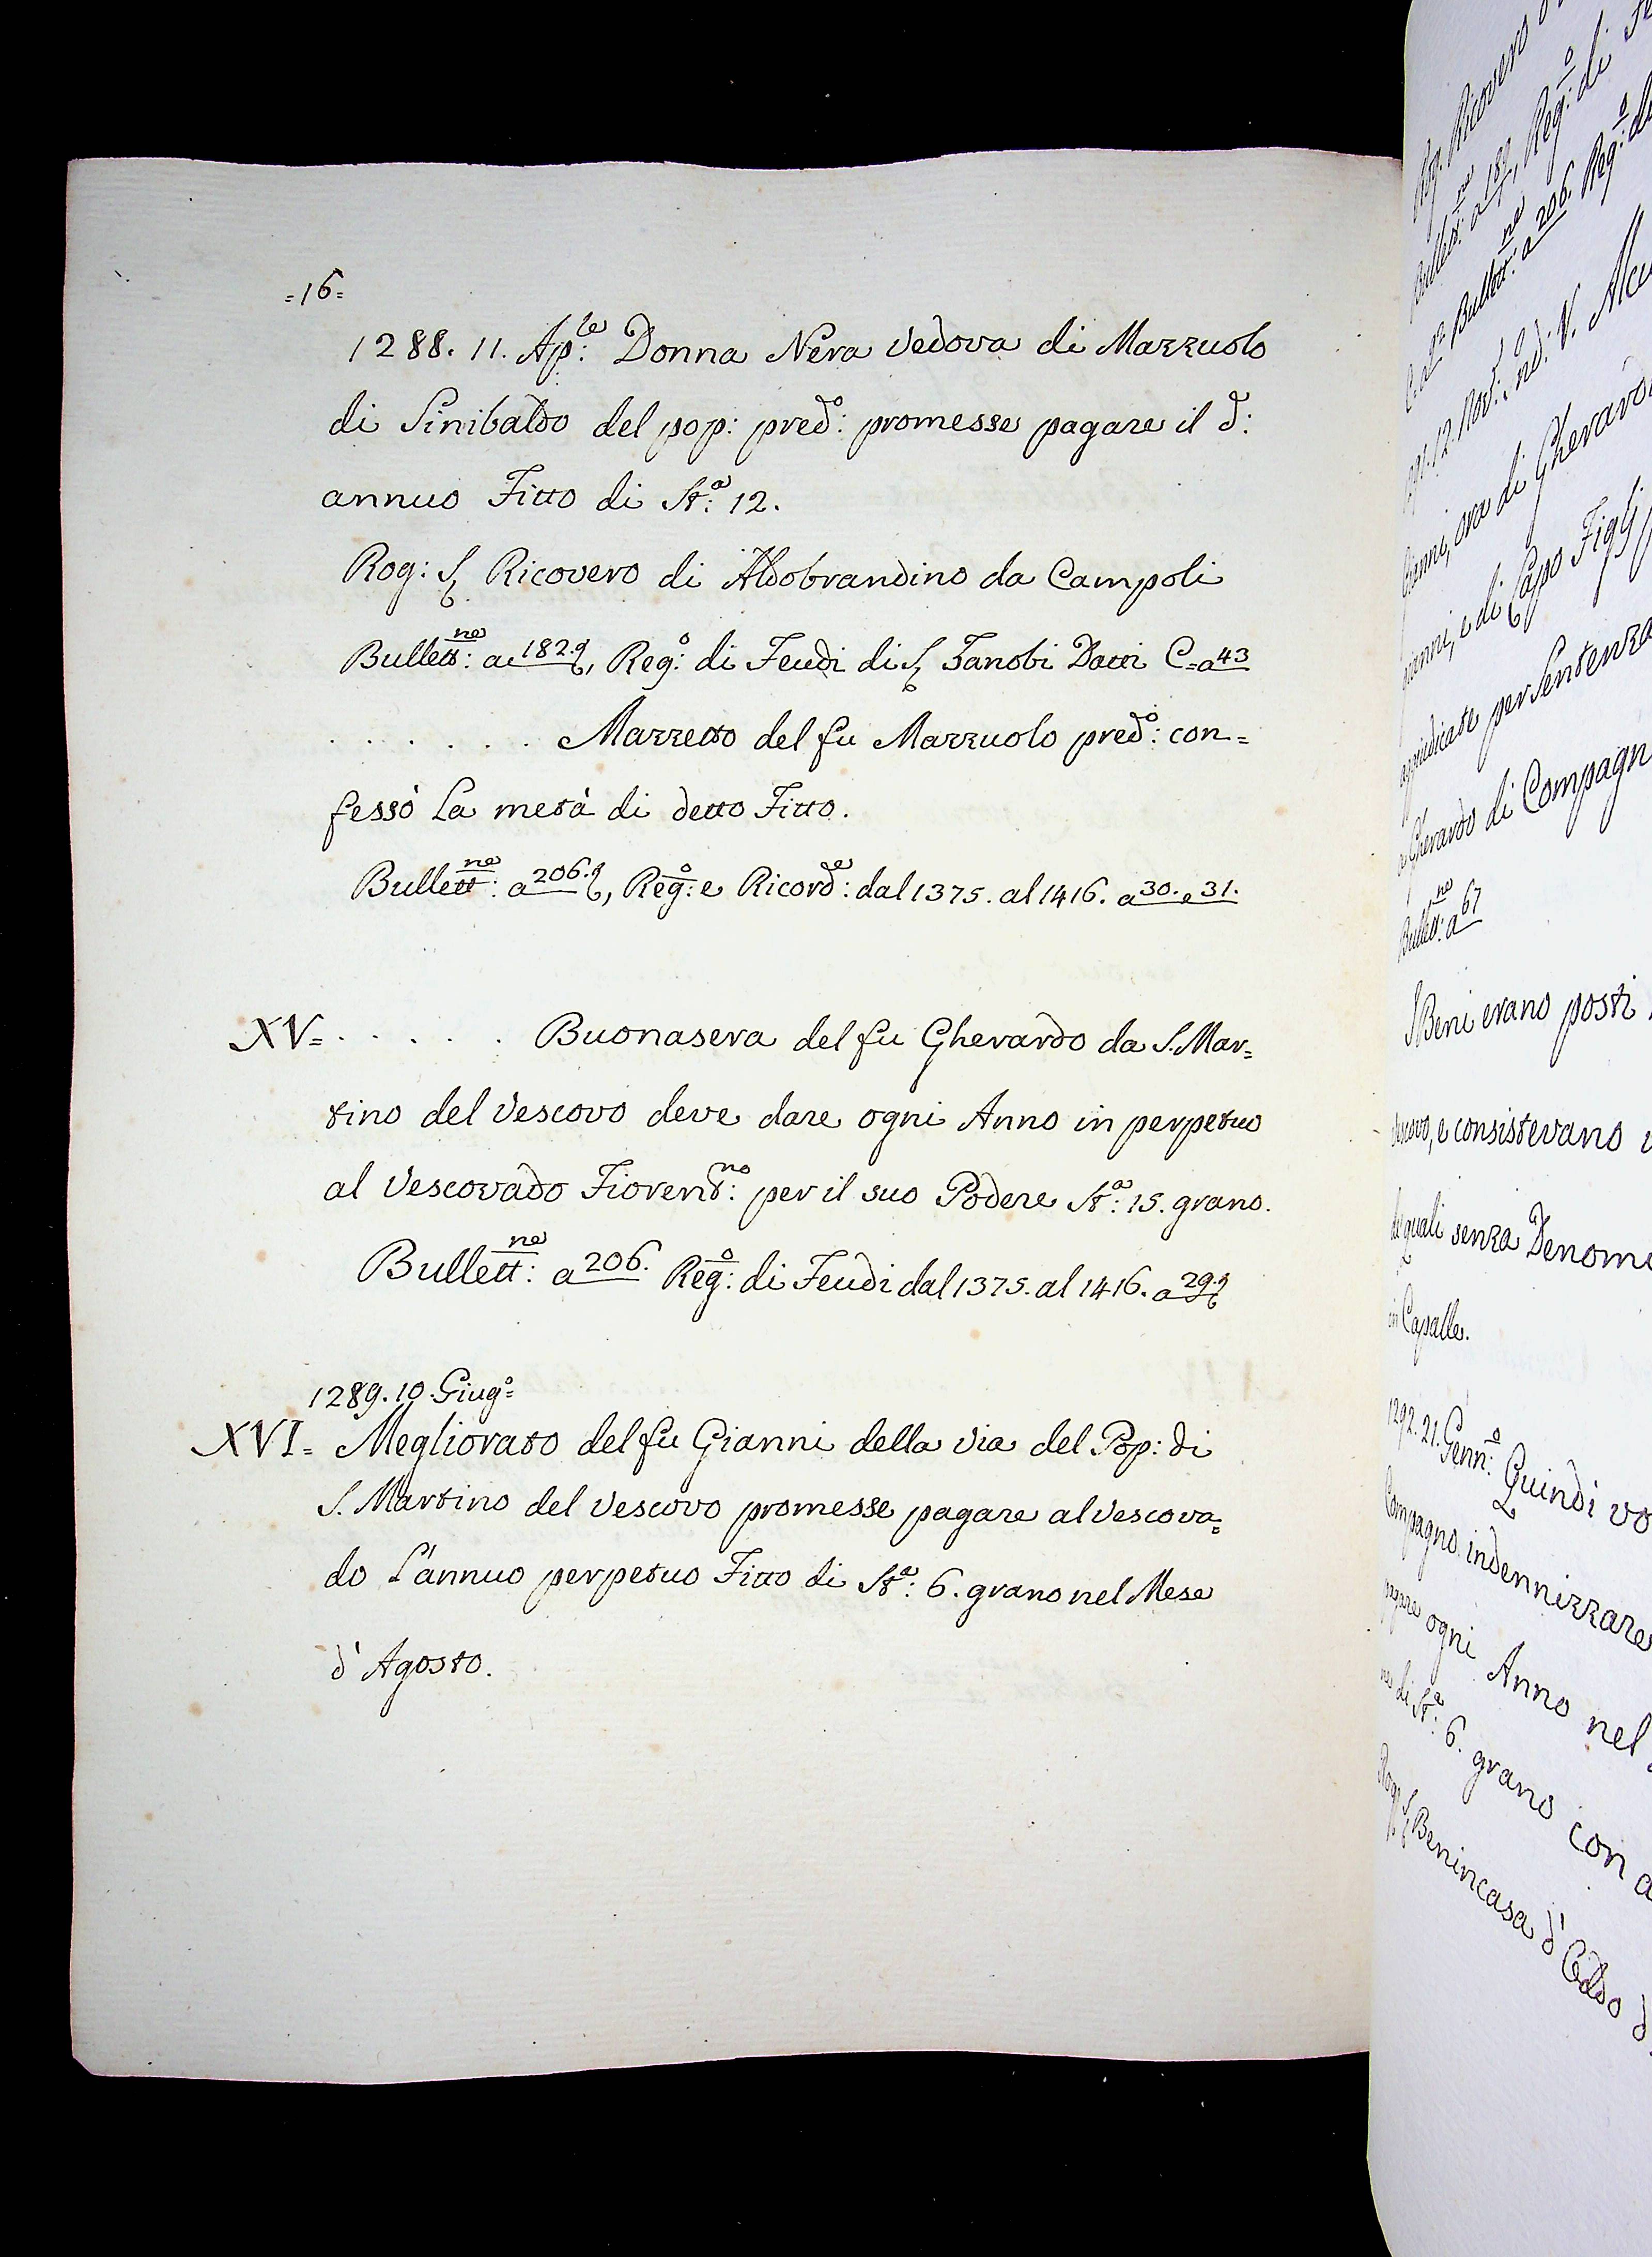 =16=
1288. 11. Ap:le Donna Nera Vedova di Mazzuolo
di Sinibaldo del pop: pred:o promesse pagare il d:o
annuo Fitto di St:a 12.
Rog: S. Ricovero di Aldobrandino da Campoli
Bullett:ne a 182., Reg:o di Feudi di S. Zanobi Datti C=a 43
. . . . . . . Mazzetto del fu Mazzuolo pred:o con=
fessò La metà di detto Fitto.
Bullett:ne a 206., Reg:o e Ricord:e dal 1375. al 1416. a 30. e 31.
XV= . . . . . Buonasera del fu Gherardo da S. Mar=
tino del Vescovo deve dare ogni Anno in perpetuo
al Vescovado Fiorent:no per il suo Podere St:a 15. grano.
Bullett:ne a 206. Reg:o di Feudi dal 1375. al 1416. a 29.
1289. 10. Giug:o
XVI= Megliorato del fu Gianni della Via del Pop: di
S. Martino del Vescovo promesse pagare al Vescova=
do L'annuo perpetuo Fitto di St:a 6. grano nel Mese
d'Agosto.
Rog. Ricovero
Bullett:ne a 182, Reg:o di
Bullett:ne a 206. Reg:o
12. Nov:
Gianni, ora di Gherardo
Gianni, e di Capo Figli
per Sentenza
e Gherardo di Compagn
Bullett:ne a 67
I Beni erano posti
scovo, e consistevano
quali senza Denom
in Capalle.
1292. 21. Genn:o Quindi vo
Compagno indennizzare
pagare ogni Anno nel
ne di St:a 6. grano con
Rog: S. Benincasa d'